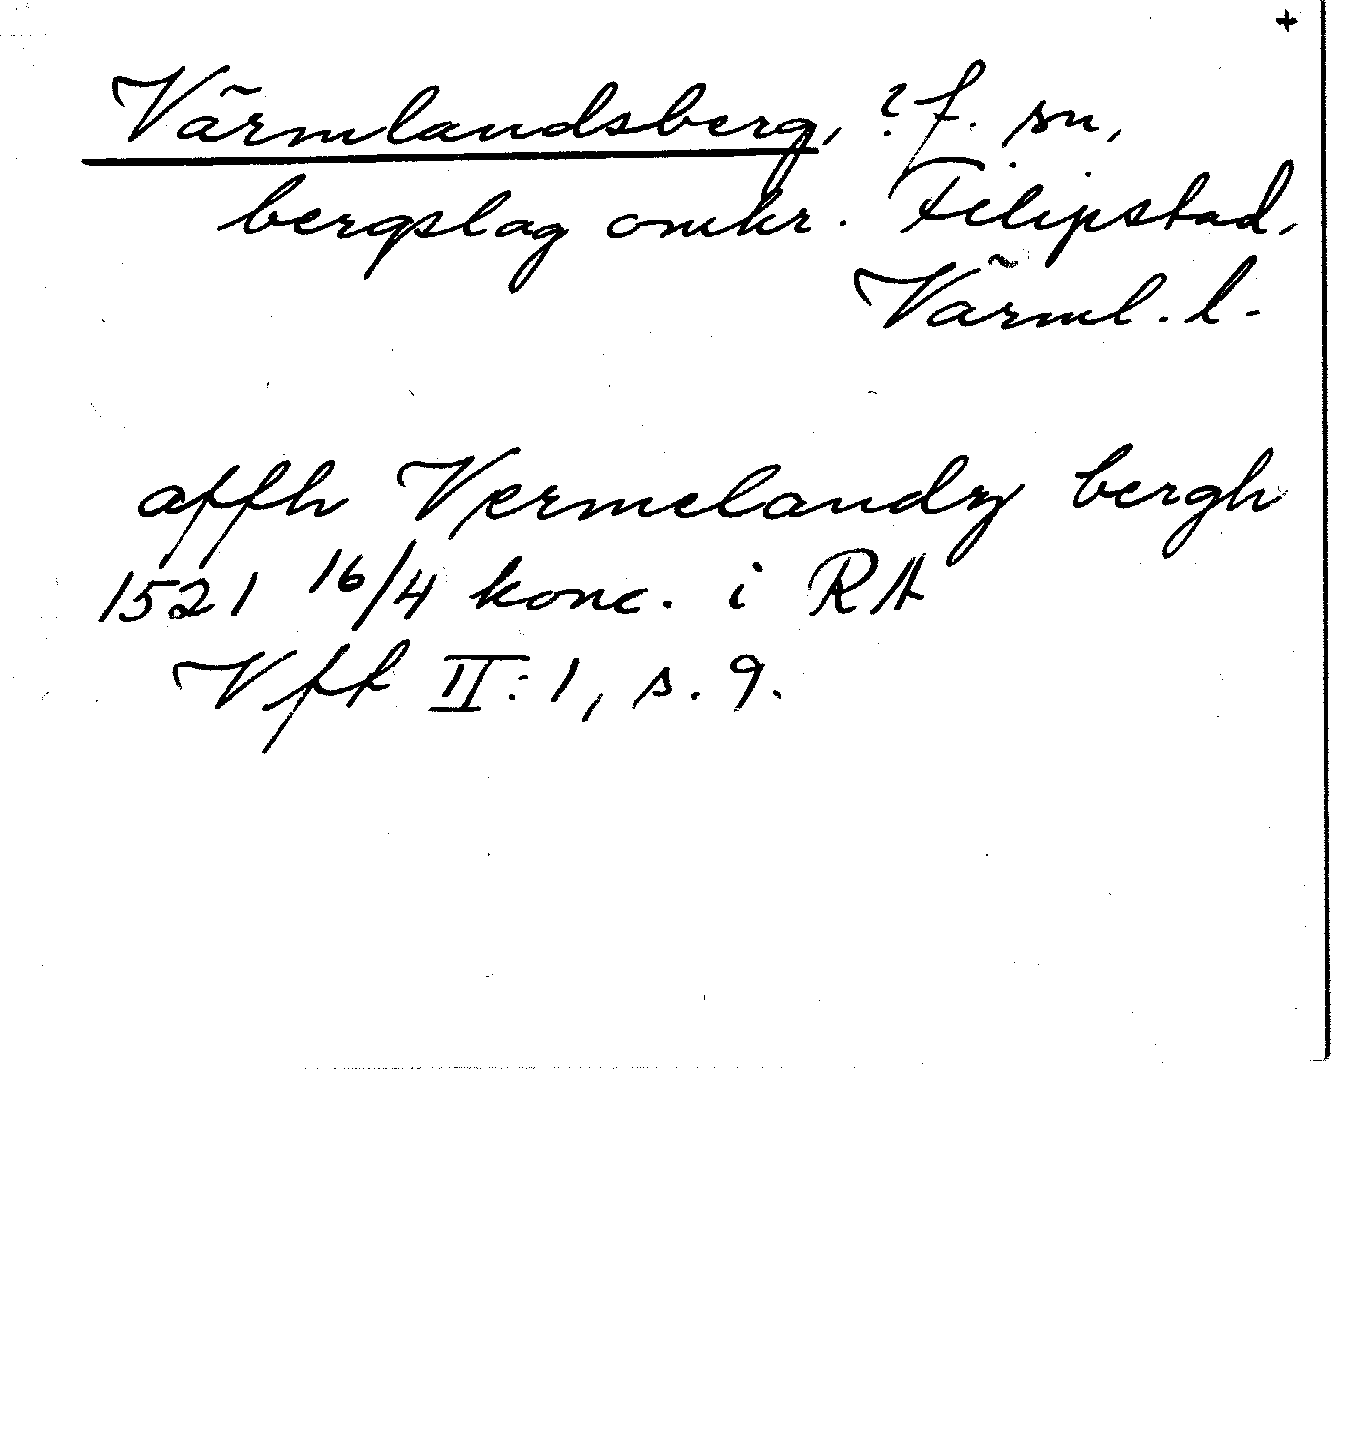 +
Värmlandsberg, ? f. sn,
bergslag omkr. Filipstad,
Värml. l.
affh Vermelandz bergh
1521 16/4 konc. i RA
Vff II:1, s. 9.